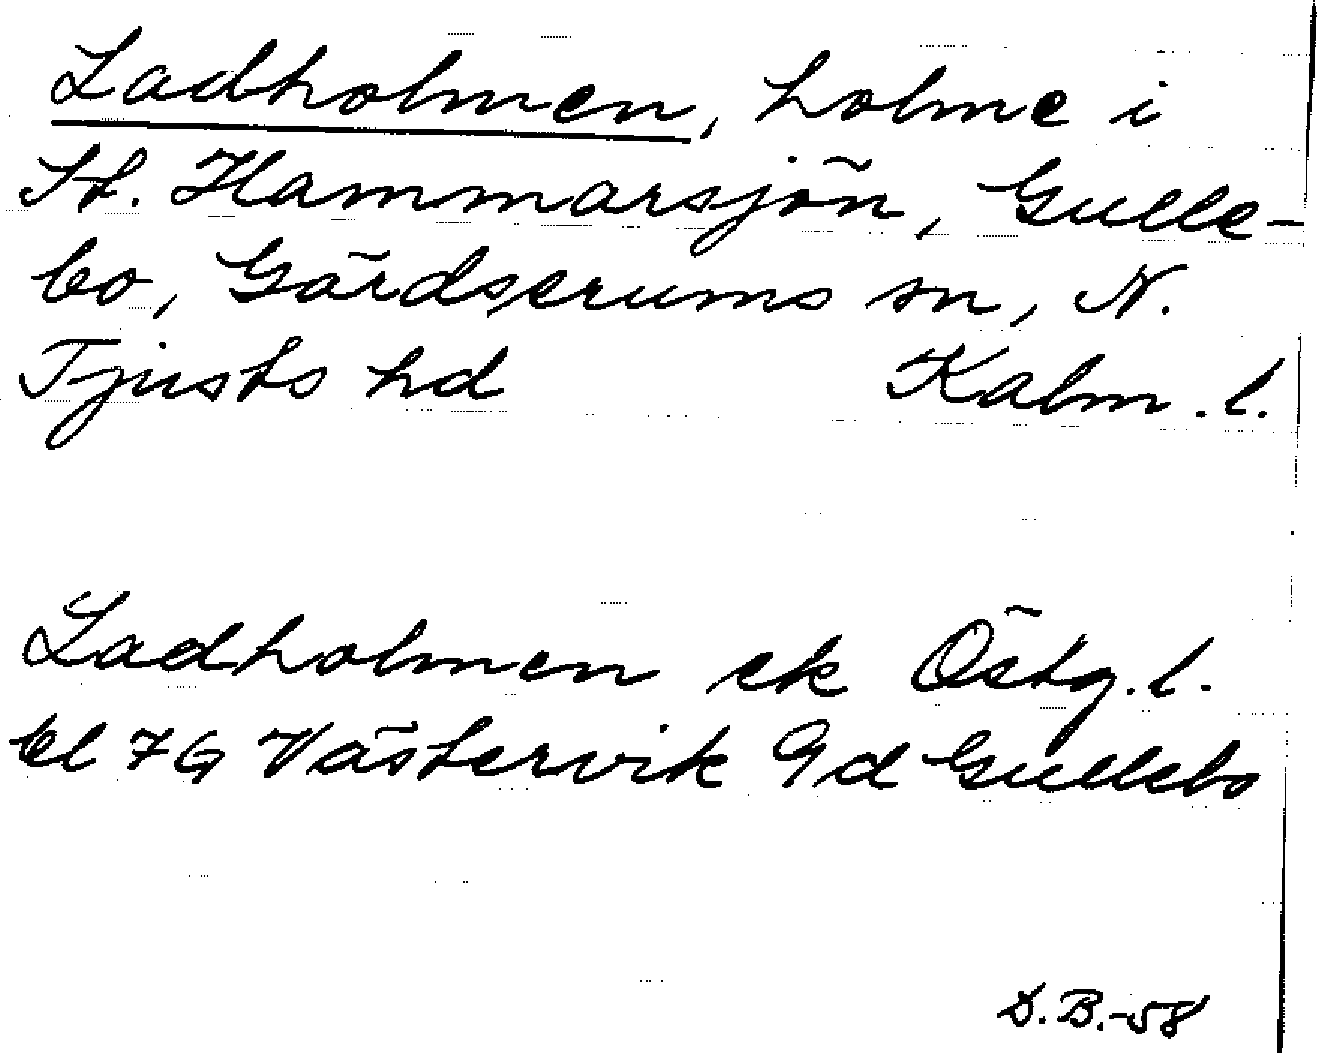 Ladholmen, holme i
St. Hammarsjön, Gulle-
bo, Gärdserums sn, N.
Tjusts hd Kalm. l.
Ladholmen ek Östg. l.
bl 7G Västervik 9d Gullebo
D.B.-58